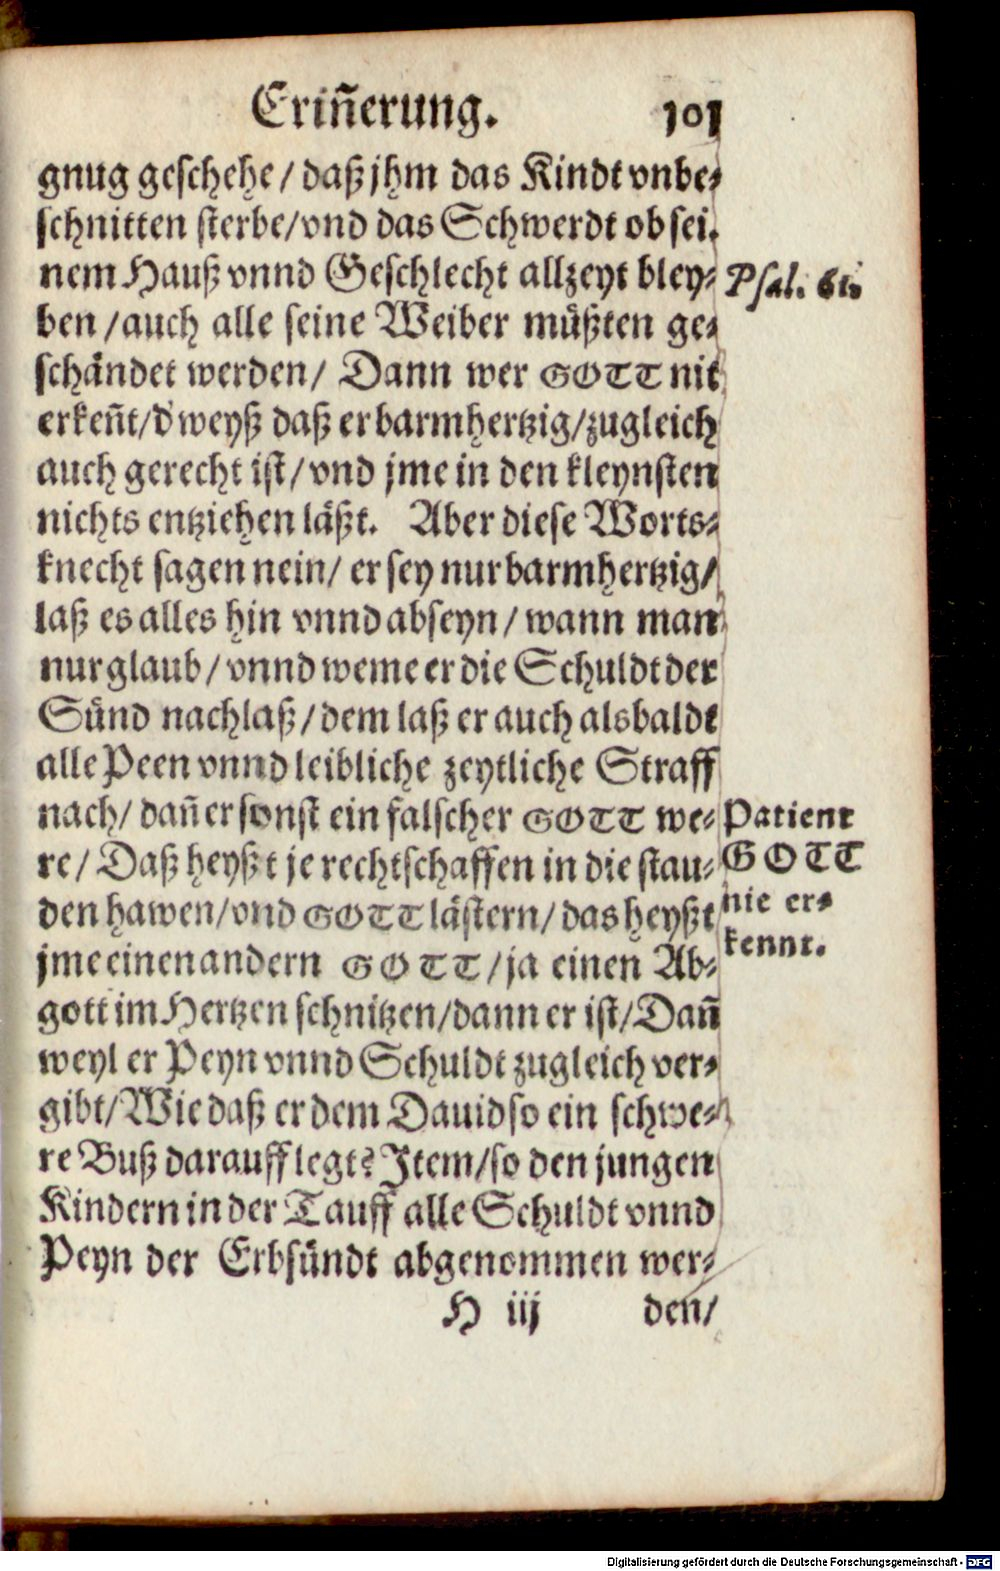 Erin̄erung. 101
gnug geschehe / daß jhm das Kindt vnbe-
schnitten sterbe/vnd das Schwerdt ob sei-
nem Hauß vnnd Geschlecht allzeyt bley-
Psal. 61.
ben / auch alle seine Weiber müßten ge-
schändet werden / Dann wer GOTT nit
erken̄t/d' weyß daß er barmhertzig/zugleich
auch gerecht ist / vnd jme in den kleynsten
nichts entziehen läßt. Aber diese Worts-
knecht sagen nein/ er sey nur barmhertzig/
laß es alles hin vnnd abseyn / wann man
nur glaub / vnnd weme er die Schuldt der
Sünd nachlaß / dem laß er auch alsbaldt
alle Peen vnnd leibliche zeytliche Straff
nach/ dan̄ er sonst ein falscher GOTT we-
re / Daß heyßt je rechtschaffen in die stau-
den hawen/vnd GOTT lästern/ das heyßt
jme einen andern GOTT / ja einen Ab-
gott im Hertzen schnitzen/dann er ist/Dan̄
Patient
GOTT
nie er-
kennt.
weyl er Peyn vnnd Schuldt zugleich ver-
gibt/Wie daß er dem Dauid so ein schwe-
re Buß darauff legt? Item/so den jungen
Kindern in der Tauff alle Schuldt vnnd
Peyn der Erbsündt abgenommen wer-
H iij den/
Digitalisierung gefördert durch die Deutsche Forschungsgemeinschaft - DFG